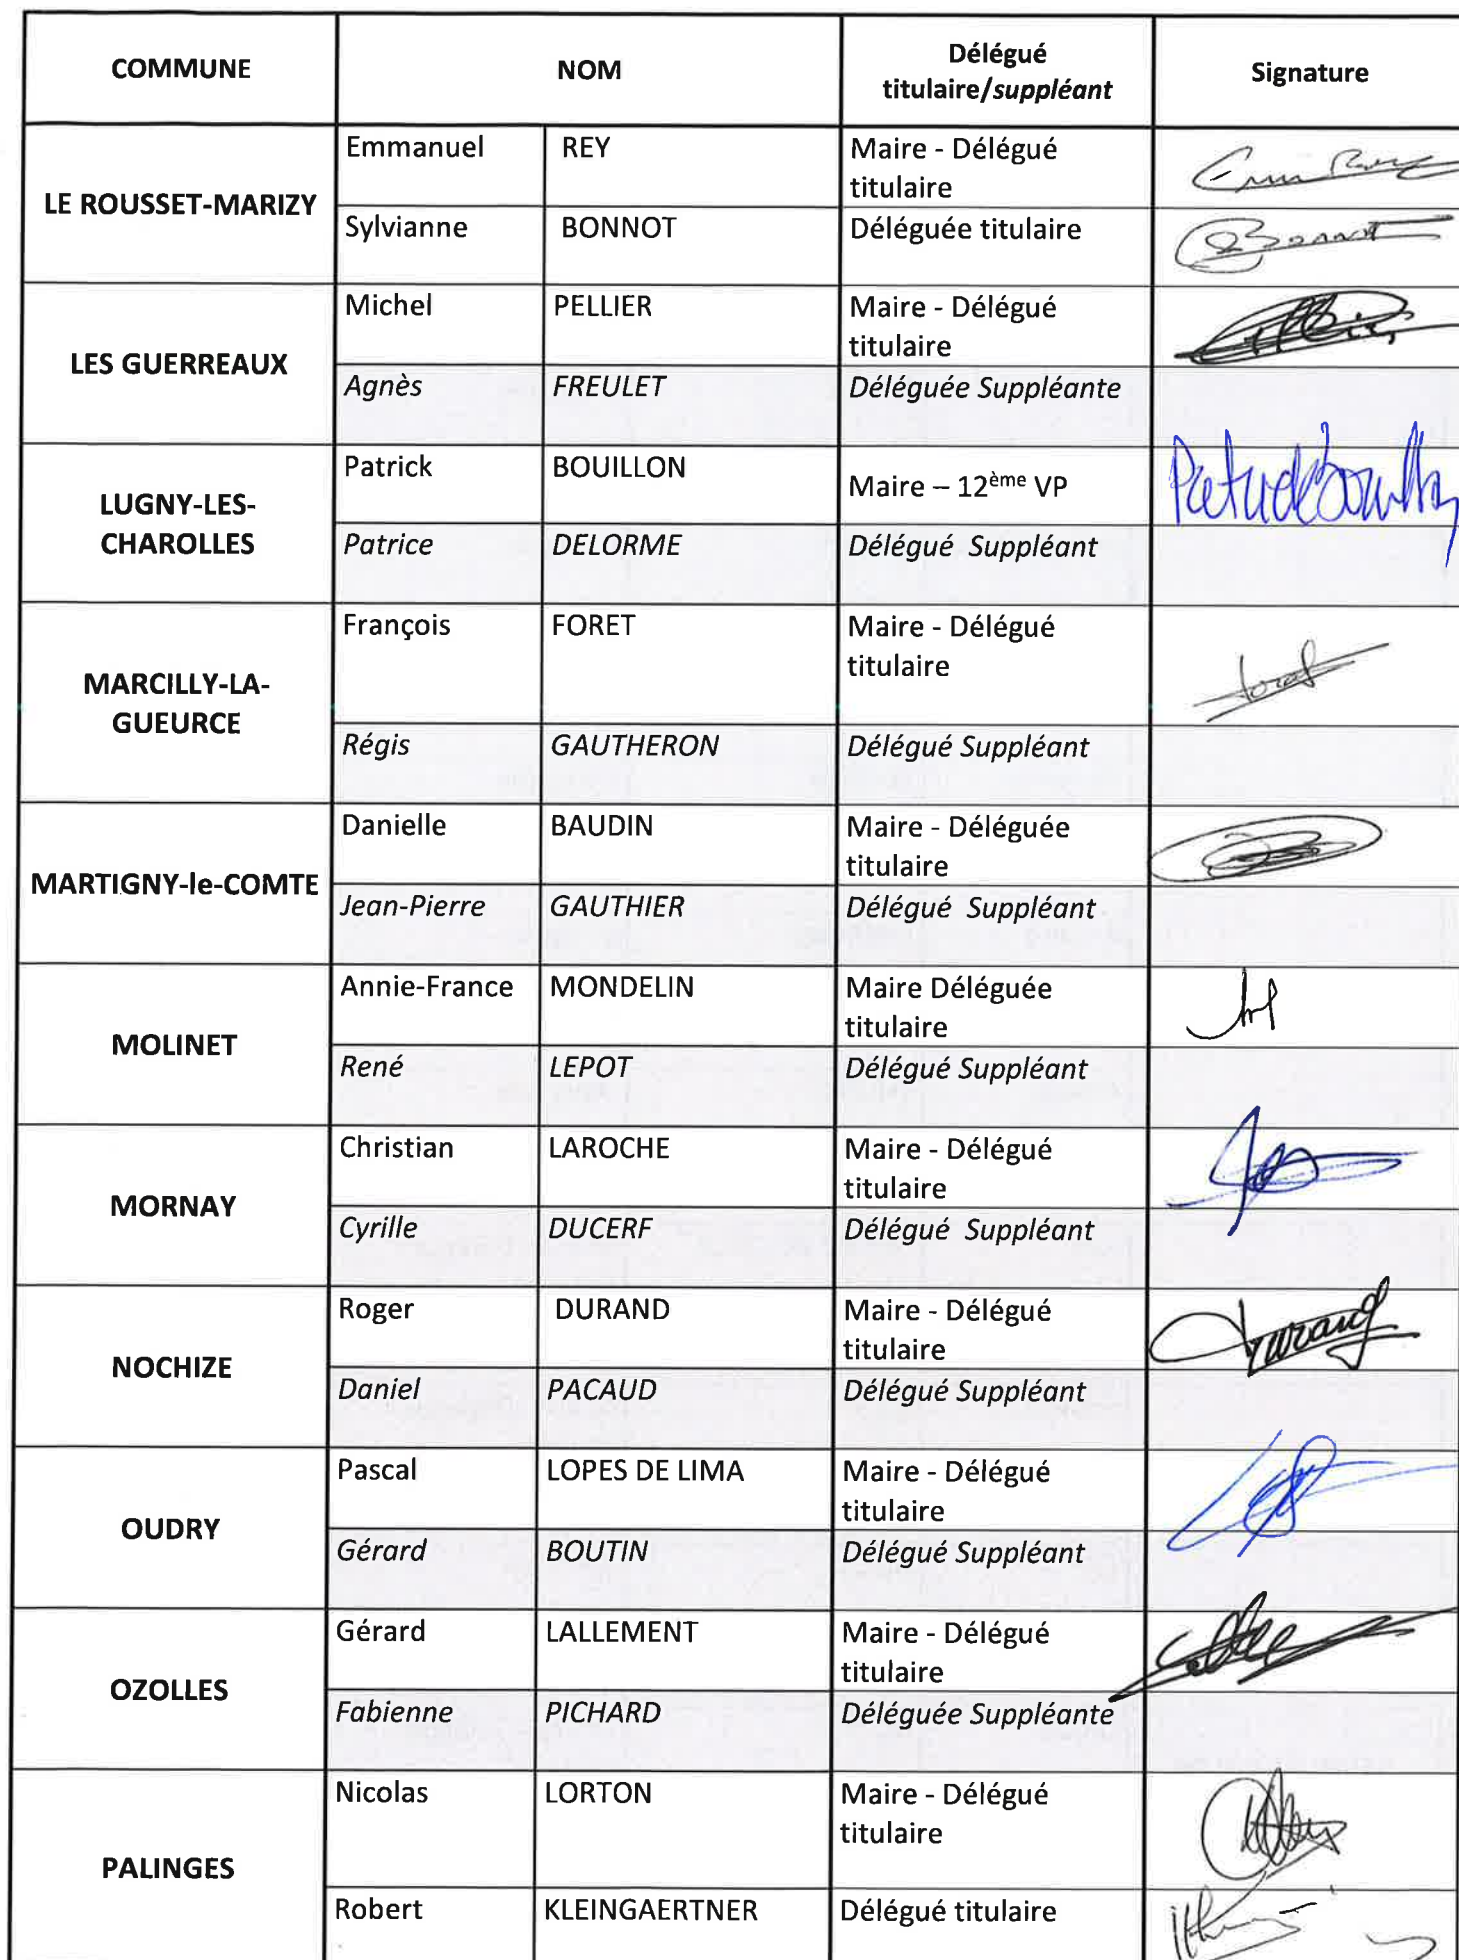 COMMUNE NOM Délégué titulaire/suppléant Signature
LE ROUSSET-MARIZY
Emmanuel REY Maire - Délégué titulaire
Sylvianne BONNOT Déléguée titulaire Bonnot
LES GUERREAUX
Michel PELLIER Maire - Délégué titulaire
Agnès FREULET Déléguée Suppléante
LUGNY-LES-CHAROLLES
Patrick BOUILLON Maire – 12ème VP
Patrice DELORME Délégué Suppléant
MARCILLY-LA-GUEURCE
François FORET Maire - Délégué titulaire
Régis GAUTHERON Délégué Suppléant
MARTIGNY-le-COMTE
Danielle BAUDIN Maire - Déléguée titulaire
Jean-Pierre GAUTHIER Délégué Suppléant
MOLINET
Annie-France MONDELIN Maire Déléguée titulaire
René LEPOT Délégué Suppléant
MORNAY
Christian LAROCHE Maire - Délégué titulaire
Cyrille DUCERF Délégué Suppléant
NOCHIZE
Roger DURAND Maire - Délégué titulaire Durand
Daniel PACAUD Délégué Suppléant
OUDRY
Pascal LOPES DE LIMA Maire - Délégué titulaire
Gérard BOUTIN Délégué Suppléant
OZOLLES
Gérard LALLEMENT Maire - Délégué titulaire
Fabienne PICHARD Déléguée Suppléante
PALINGES
Nicolas LORTON Maire - Délégué titulaire
Robert KLEINGAERTNER Délégué titulaire